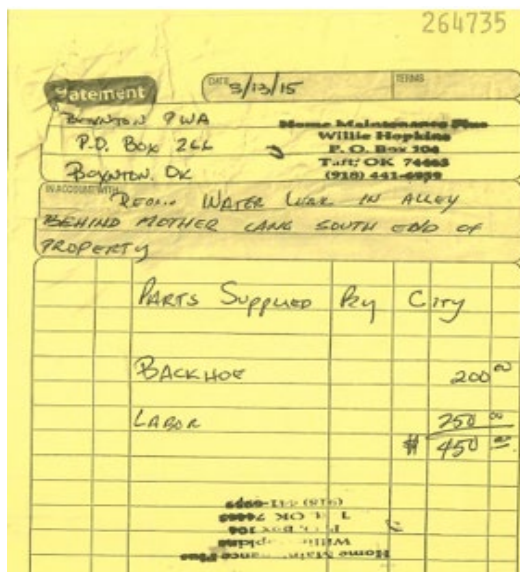 264735
Statement
DATE 3/13/15 TERMS
BOYNTON PWA
P.O. BOX 266
BOYNTON, OK
Home Maintenance Plus
Willie Hopkins
P. O. Box 104
Taft, OK 74463
(918) 441-6959
IN ACCOUNT WITH
WATER LEAK IN ALLEY
BEHIND MOTHER LANG SOUTH END OF
PROPERTY
PARTS SUPPLIED BY CITY
BACKHOE 200 00
LABOR 250 00
$ 450 00
Home Maintenance Plus
Willie Hopkins
P. O. Box 104
Taft, OK
(918) 441-6959